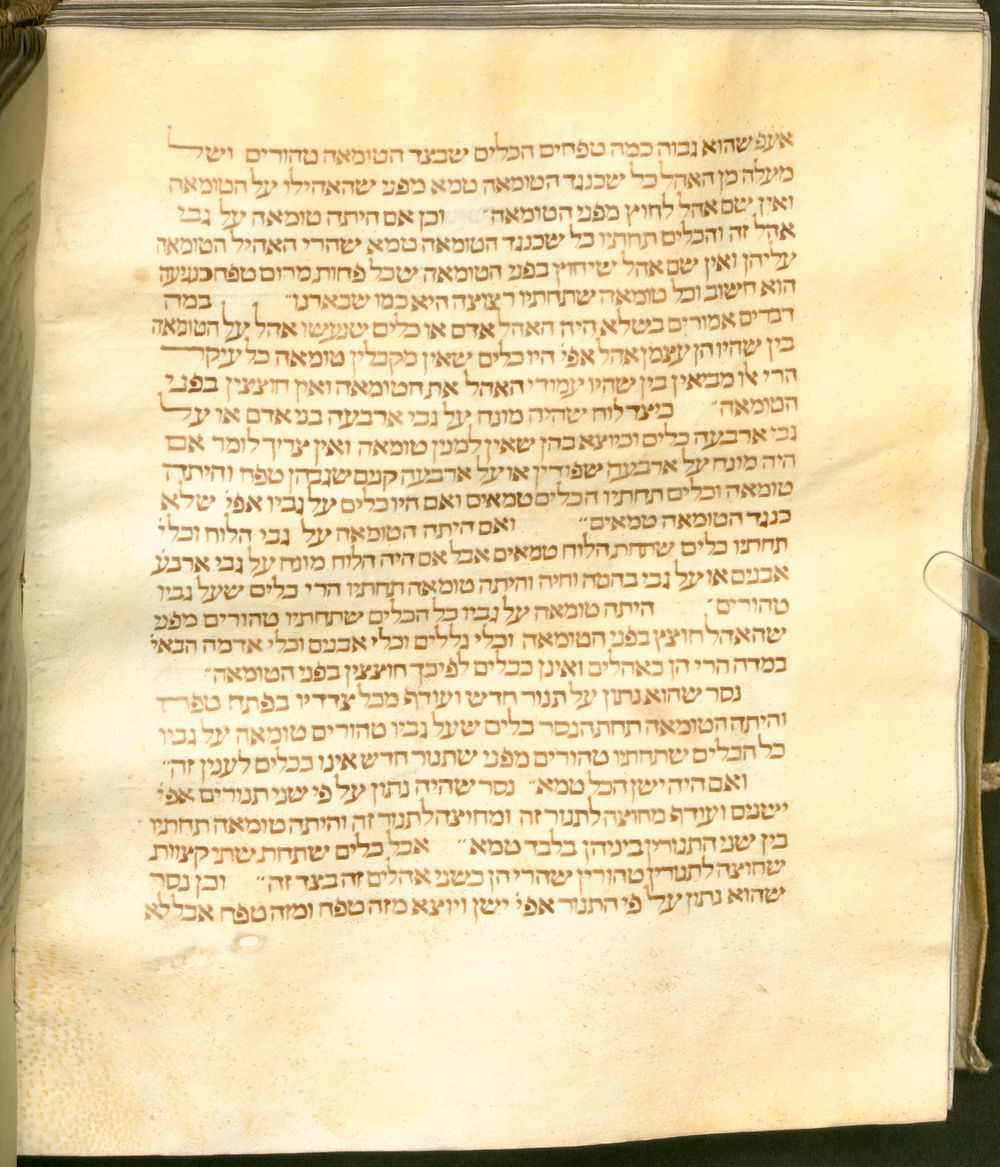 אעפ שהוא גבוה כמה טפחים הכלים שבצד הטומאה טהורים ושל
מעלה מן האהל כל שכנגד הטומאה טמא מפני שהאהילו על הטומאה
ואין שם אהל לחוץ מפני הטומאה״ וכן אם היתה טומאה על גבי
אהל זה והכלים תחתיו כל שכנגד הטומאה טמא שהרי האהיל הטומאה
עליהן ואין שם אהל שיחוץ בפני הטומאה שכל פחות מרום טפח כנגיעה
הוא חשוב וכל טומאה שתחתיו רצוצה היא כמו שבארנו״ במה
דברים אמורים בשלא היה האהל אדם או כלים שנעשו אהל על הטומאה
בין שהיו הן עצמן אהל אפי׳ היו כלים שאין מקבלין טומאה כל עיקר
הרי אלו מביאין בין שהיו עמודי האהל את הטומאה ואין חוצצין בפני
הטומאה״ כיצד לוח שהיה מונח על גבי ארבעה בני אדם או על
גבי ארבעה כלים וכיוצא בהן שאין למנין טומאה ואין צריך לומר אם
היה מונח על ארבעה שפודין או על ארבעה קנים שגבהן טפח והיתה
טומאה וכלים תחתיו הכלים טמאים ואם היו כלים על גביו אפי׳ שלא
כנגד הטומאה טמאים״ ואם היתה הטומאה על גבי הלוח וכלי׳
תחתיו כלים שתחת הלוח טמאים אבל אם היה הלוח מונח על גבי ארבע
אבנים או על גבי בהמה וחיה והיתה טומאה תחתיו הרי כלים שעל גביו
טהורים׳ היתה טומאה על גביו כל הכלים שתחתיו טהורים מפני
שהאהל חוצץ בפני הטומאה וכלי גללים וכלי אבנים וכלי אדמה הבאי׳
במדה הרי הן כאהלים ואינן ככלים לפיכך חוצצין בפני הטומאה״
נסר שהוא נתון על תנור חדש ועודף מכל צדדיו בפתח טפח
והיתה הטומאה תחת הנסר כלים שעל גביו טהורים טומאה על גביו
כל הכלים שתחתיו טהורים מפני שתנור חדש אינו ככלים לענין זה״
ואם היה ישן הכל טמא״ נסר שהיה נתון על פי שני תנורים אפי׳
ישנים ועודף מחוצה לתנור זה ומחוצה לתנור זה והיתה טומאה תחתיו
בין שני התנורין ביניהן בלבד טמא״ אבל כלים שתחת שתי קצוות
שחוצה לתנורין טהורין שהרי הן כשני אהלים זה בצד זה״ וכן נסר
שהוא נתון על פי התנור אפי׳ ישן ויוצא מזה טפח ומזה טפח אבל לא